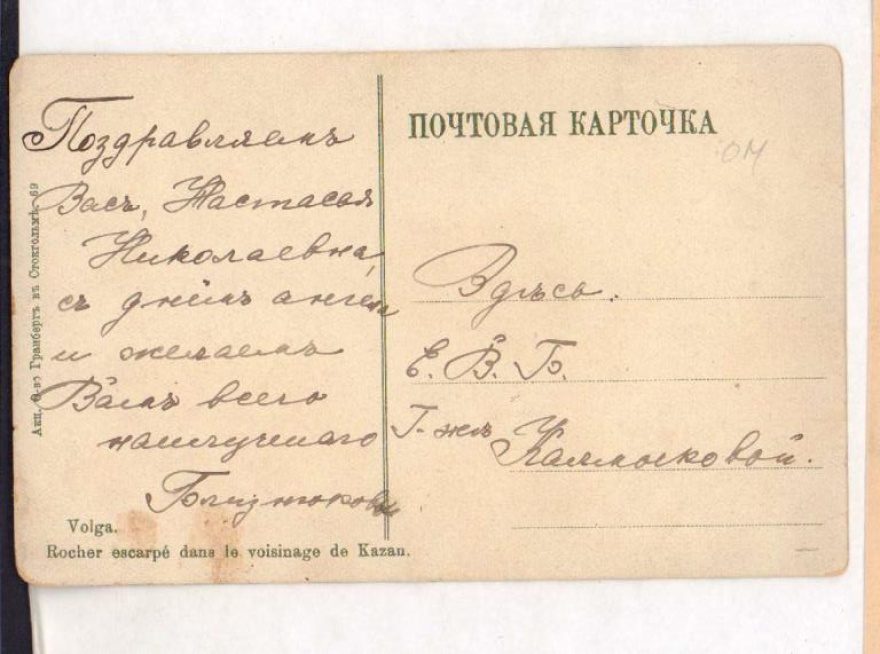 Поздравляемъ
Васъ, Настасья
Николаевна,
съ днёмъ ангела
и желаемъ
Вамъ всего
наилучшаго
Volga.
Rocher escarpé dans le voisinage de Kazan.
Акц. О-во Гранбергъ въ Стокгольмѣ. 69
ПОЧТОВАЯ КАРТОЧКА
ОМ
Здѣсь.
Е. В. Б.
Г-жѣ Калмыковой.